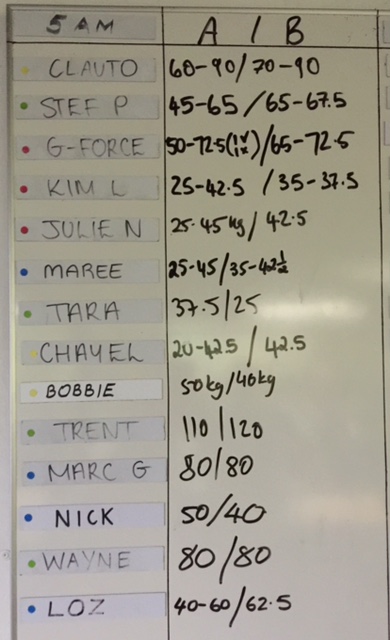 5 AM A / B
CLAUTO 60-90/70-90
STEF P 45-65/65-67.5
G-FORCE 50-72.5 /65-72.5
KIM L 25-42.5 / 35-37.5
JULIE N 25-45kg/ 42.5
MAREE 25-45/35-42½
TARA 37.5/25
CHAYEL 20-42.5 / 42.5
BOBBIE 50kg/40kg
TRENT 110/120
MARC G 80/80
NICK 50/40
WAYNE 80/80
LOZ 40-60/62.5